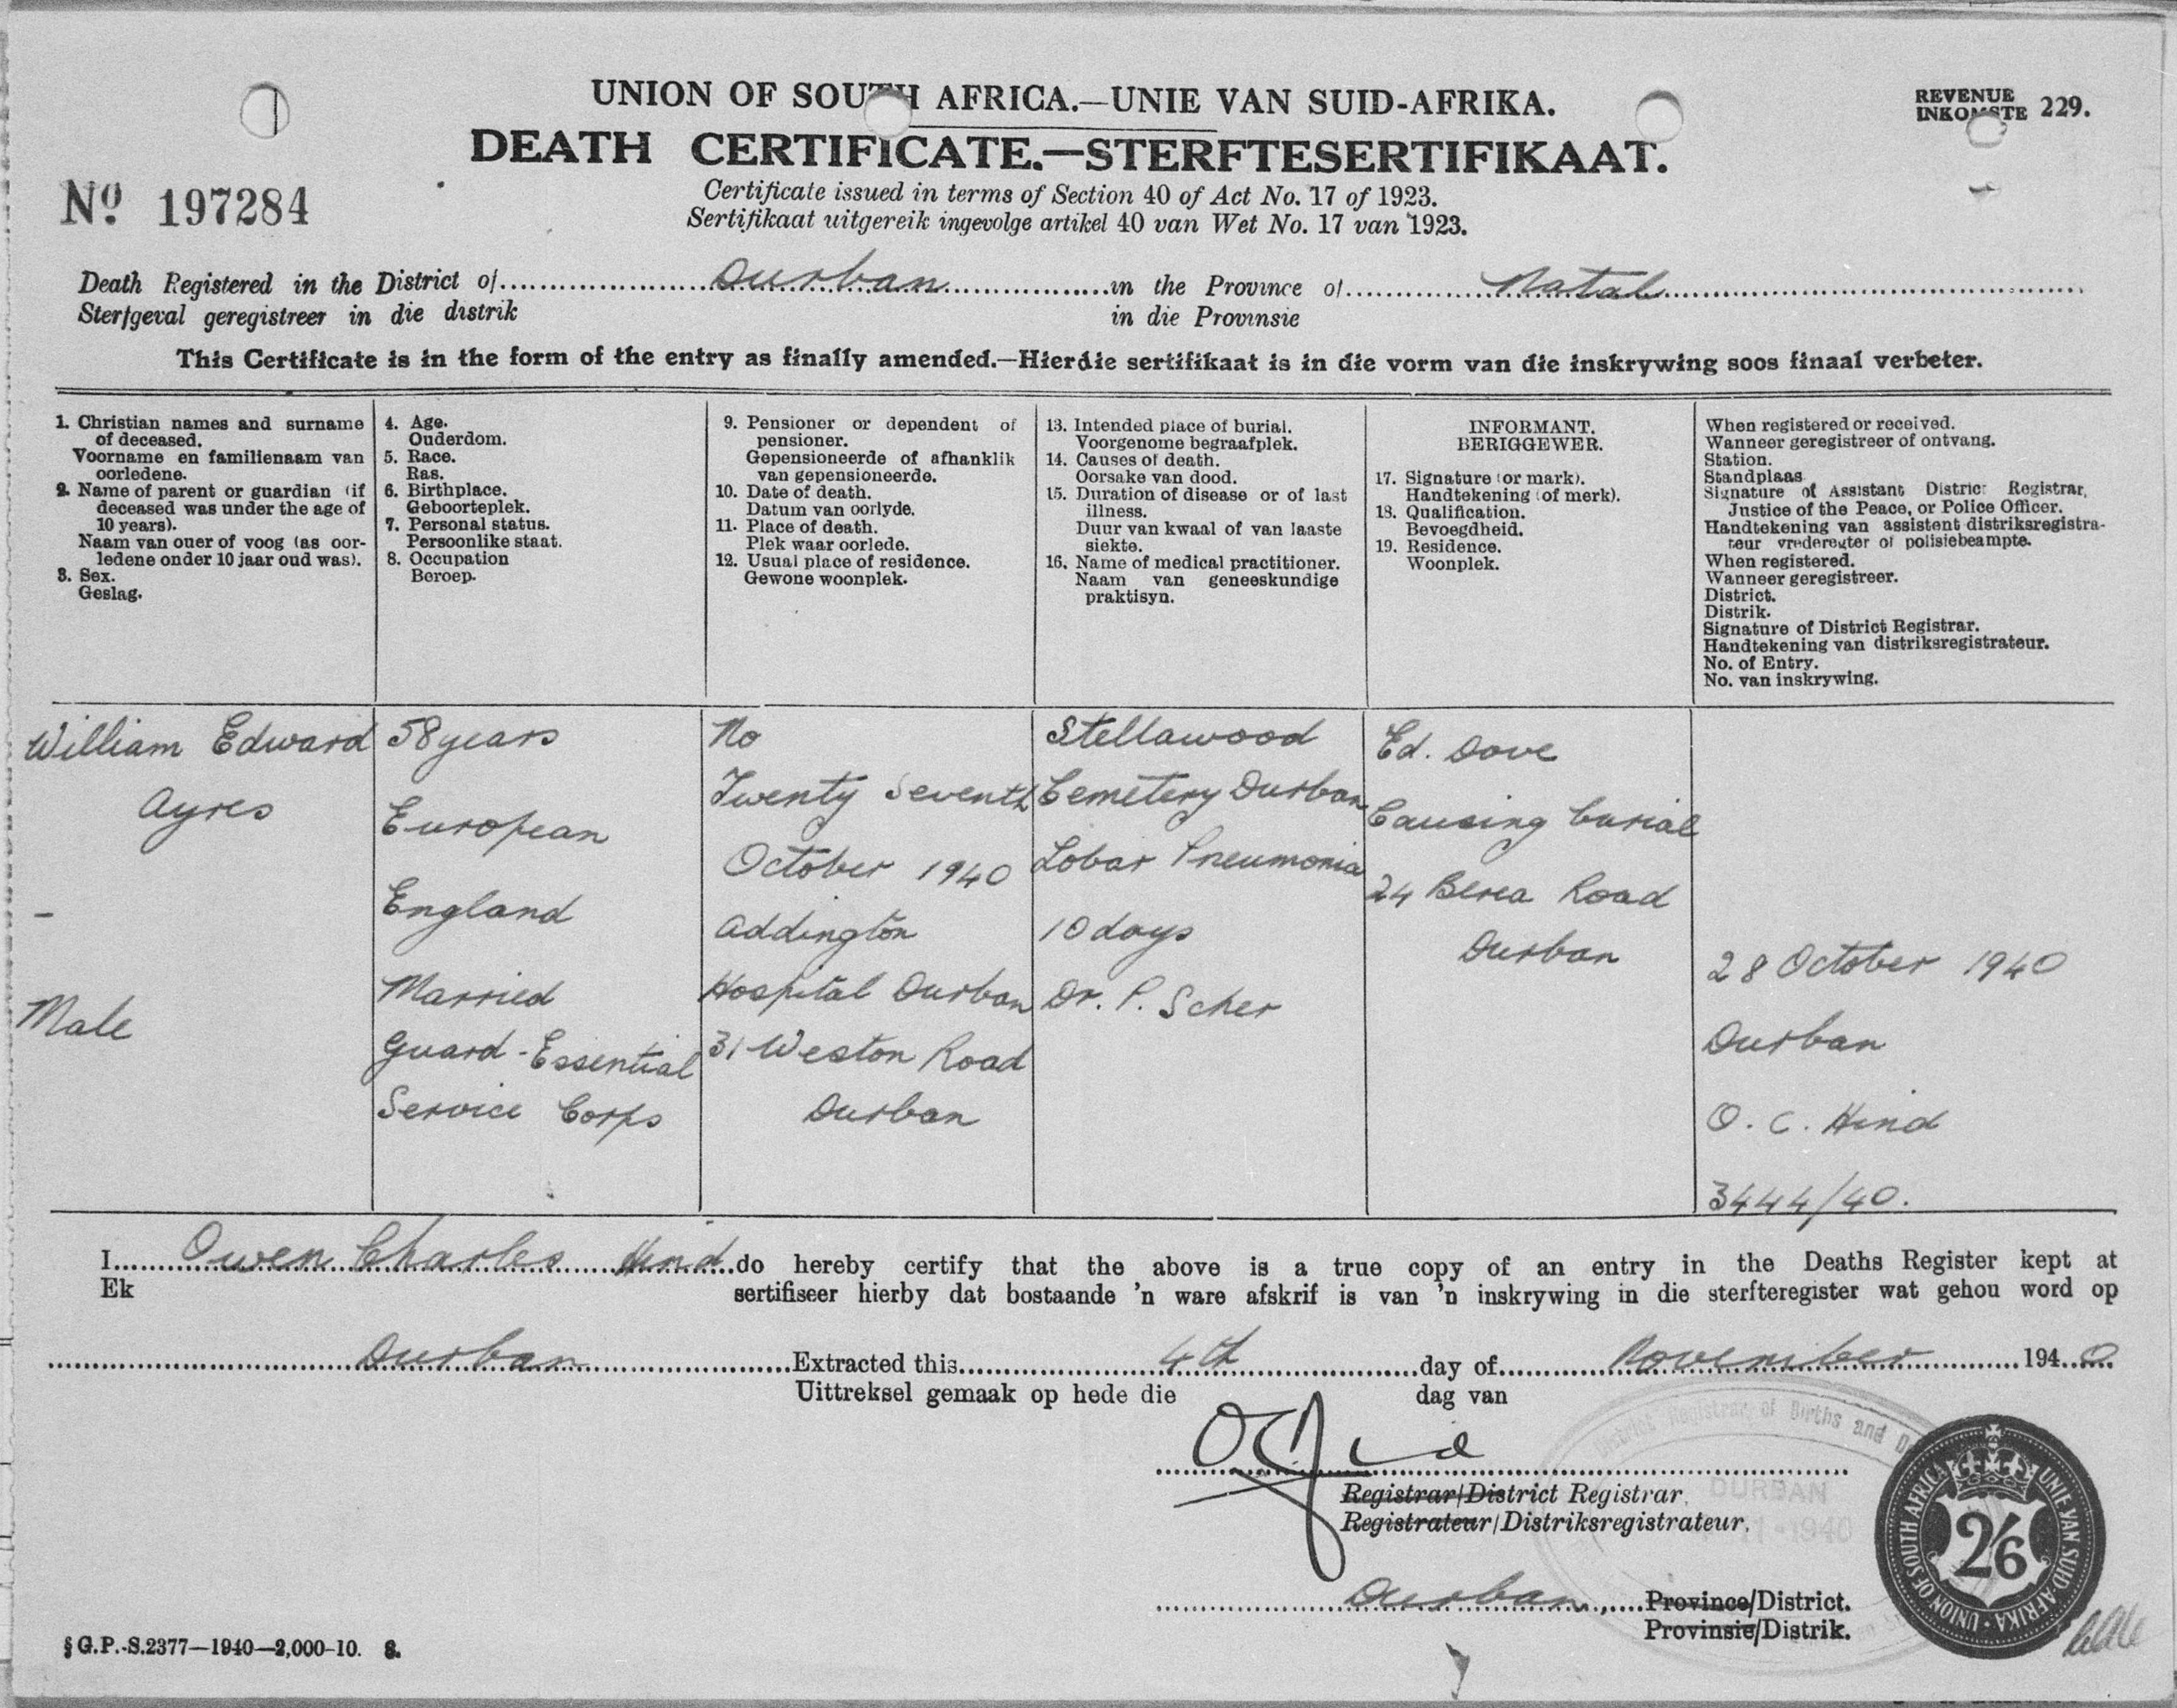 UNION OF SOUTH AFRICA.—UNIE VAN SUID-AFRIKA.
REVENUE
INKOMSTE 229.
DEATH CERTIFICATE.—STERFTESERTIFIKAAT.
No 197284
Certificate issued in terms of Section 40 of Act No. 17 of 1923.
Sertifikaat uitgereik ingevolge artikel 40 van Wet No. 17 van 1923.
Death Registered in the District of Durban in the Province of Natal
Sterfgeval geregistreer in die distrik in die Provinsie
This Certificate is in the form of the entry as finally amended.—Hierdie sertifikaat is in die vorm van die inskrywing soos finaal verbeter.
1. Christian names and surname
of deceased.
Voorname en familienaam van
oorledene.
2. Name of parent or guardian (if
deceased was under the age of
10 years).
Naam van ouer of voog (as oor-
ledene onder 10 jaar oud was).
3. Sex.
Geslag.
4. Age.
Ouderdom.
5. Race.
Ras.
6. Birthplace.
Geboorteplek.
7. Personal status.
Persoonlike staat.
8. Occupation
Beroep.
9. Pensioner or dependent of
pensioner.
Gepensioneerde of afhanklik
van gepensioneerde.
10. Date of death.
Datum van oorlyde.
11. Place of death.
Plek waar oorlede.
12. Usual place of residence.
Gewone woonplek.
13. Intended place of burial.
Voorgenome begraafplek.
14. Causes of death.
Oorsake van dood.
15. Duration of disease or of last
illness.
Duur van kwaal of van laaste
siekte.
16. Name of medical practitioner.
Naam van geneeskundige
praktisyn.
INFORMANT.
BERIGGEWER.
17. Signature (or mark).
Handtekening (of merk).
18. Qualification.
Bevoegdheid.
19. Residence.
Woonplek.
When registered or received.
Wanneer geregistreer of ontvang.
Station.
Standplaas
Signature of Assistant District Registrar,
Justice of the Peace, or Police Officer.
Handtekening van assistent distriksregistra-
teur vrederegter of polisiebeampte.
When registered.
Wanneer geregistreer.
District.
Distrik.
Signature of District Registrar.
Handtekening van distriksregistrateur.
No. of Entry.
No. van inskrywing.
William Edward
Ayres
–
Male
58 years
European
England
Married
Guard - Essential
Service Corps
No
Twenty Seventh
October 1940
Addington
Hospital Durban
31 Weston Road
Durban
Stellawood
Cemetery Durban
Lobar Pneumonia
10 days
Dr. P. Scher
Ed. Dove
Causing burial
24 Berea Road
Durban
28 October 1940
Durban
O. C. Hind
3444/40.
I Owen Charles Hind do hereby certify that the above is a true copy of an entry in the Deaths Register kept at
Ek sertifiseer hierby dat bostaande 'n ware afskrif is van 'n inskrywing in die sterfteregister wat gehou word op
Durban Extracted this 4th day of November 1940
Uittreksel gemaak op hede die dag van
OCHind
Registrar/District Registrar.
Registrateur/Distriksregistrateur.
District Registrar of Births and
DURBAN
1940
Durban Province/District.
Provinsie/Distrik.
UNION OF SOUTH AFRICA · UNIE VAN SUID-AFRIKA
2/6
§ G.P.-S.2377—1940—2,000-10. S.